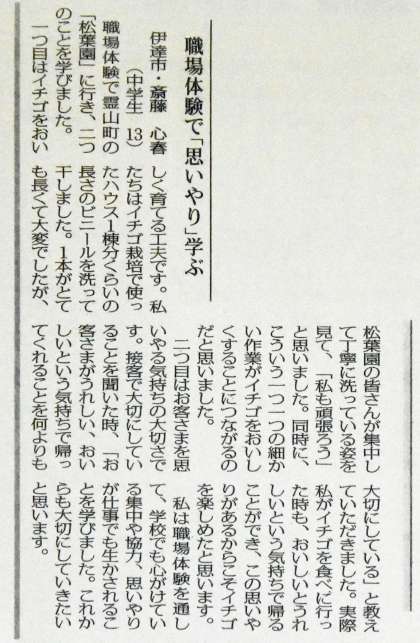 職場体験で「思いやり」学ぶ
伊達市・斎藤 心春
(中学生 13)
職場体験で霊山町の
「松葉園」に行き、二つ
のことを学びました。
一つ目はイチゴをおい
しく育てる工夫です。私
たちはイチゴ栽培で使っ
たハウス1棟分くらいの
長さのビニールを洗って
干しました。1本がとて
も長くて大変でしたが、
松葉園の皆さんが集中し
て丁寧に洗っている姿を
見て、「私も頑張ろう」
と思いました。同時に、
こういう一つ一つの細か
い作業がイチゴをおいし
くすることにつながるの
だと思いました。
二つ目はお客さまを思
いやる気持ちの大切さで
す。接客で大切にしてい
ることを聞いた時、「お
客さまがうれしい、おい
しいという気持ちで帰っ
てくれることを何よりも
大切にしている」と教え
ていただきました。実際
私がイチゴを食べに行っ
た時も、おいしいとうれ
しいという気持ちで帰る
ことができ、この思いや
りがあるからこそイチゴ
を楽しめたと思います。
私は職場体験を通し
て、学校でも心がけてい
る集中や協力、思いやり
が仕事でも生かされるこ
とを学びました。これか
らも大切にしていきたい
と思います。